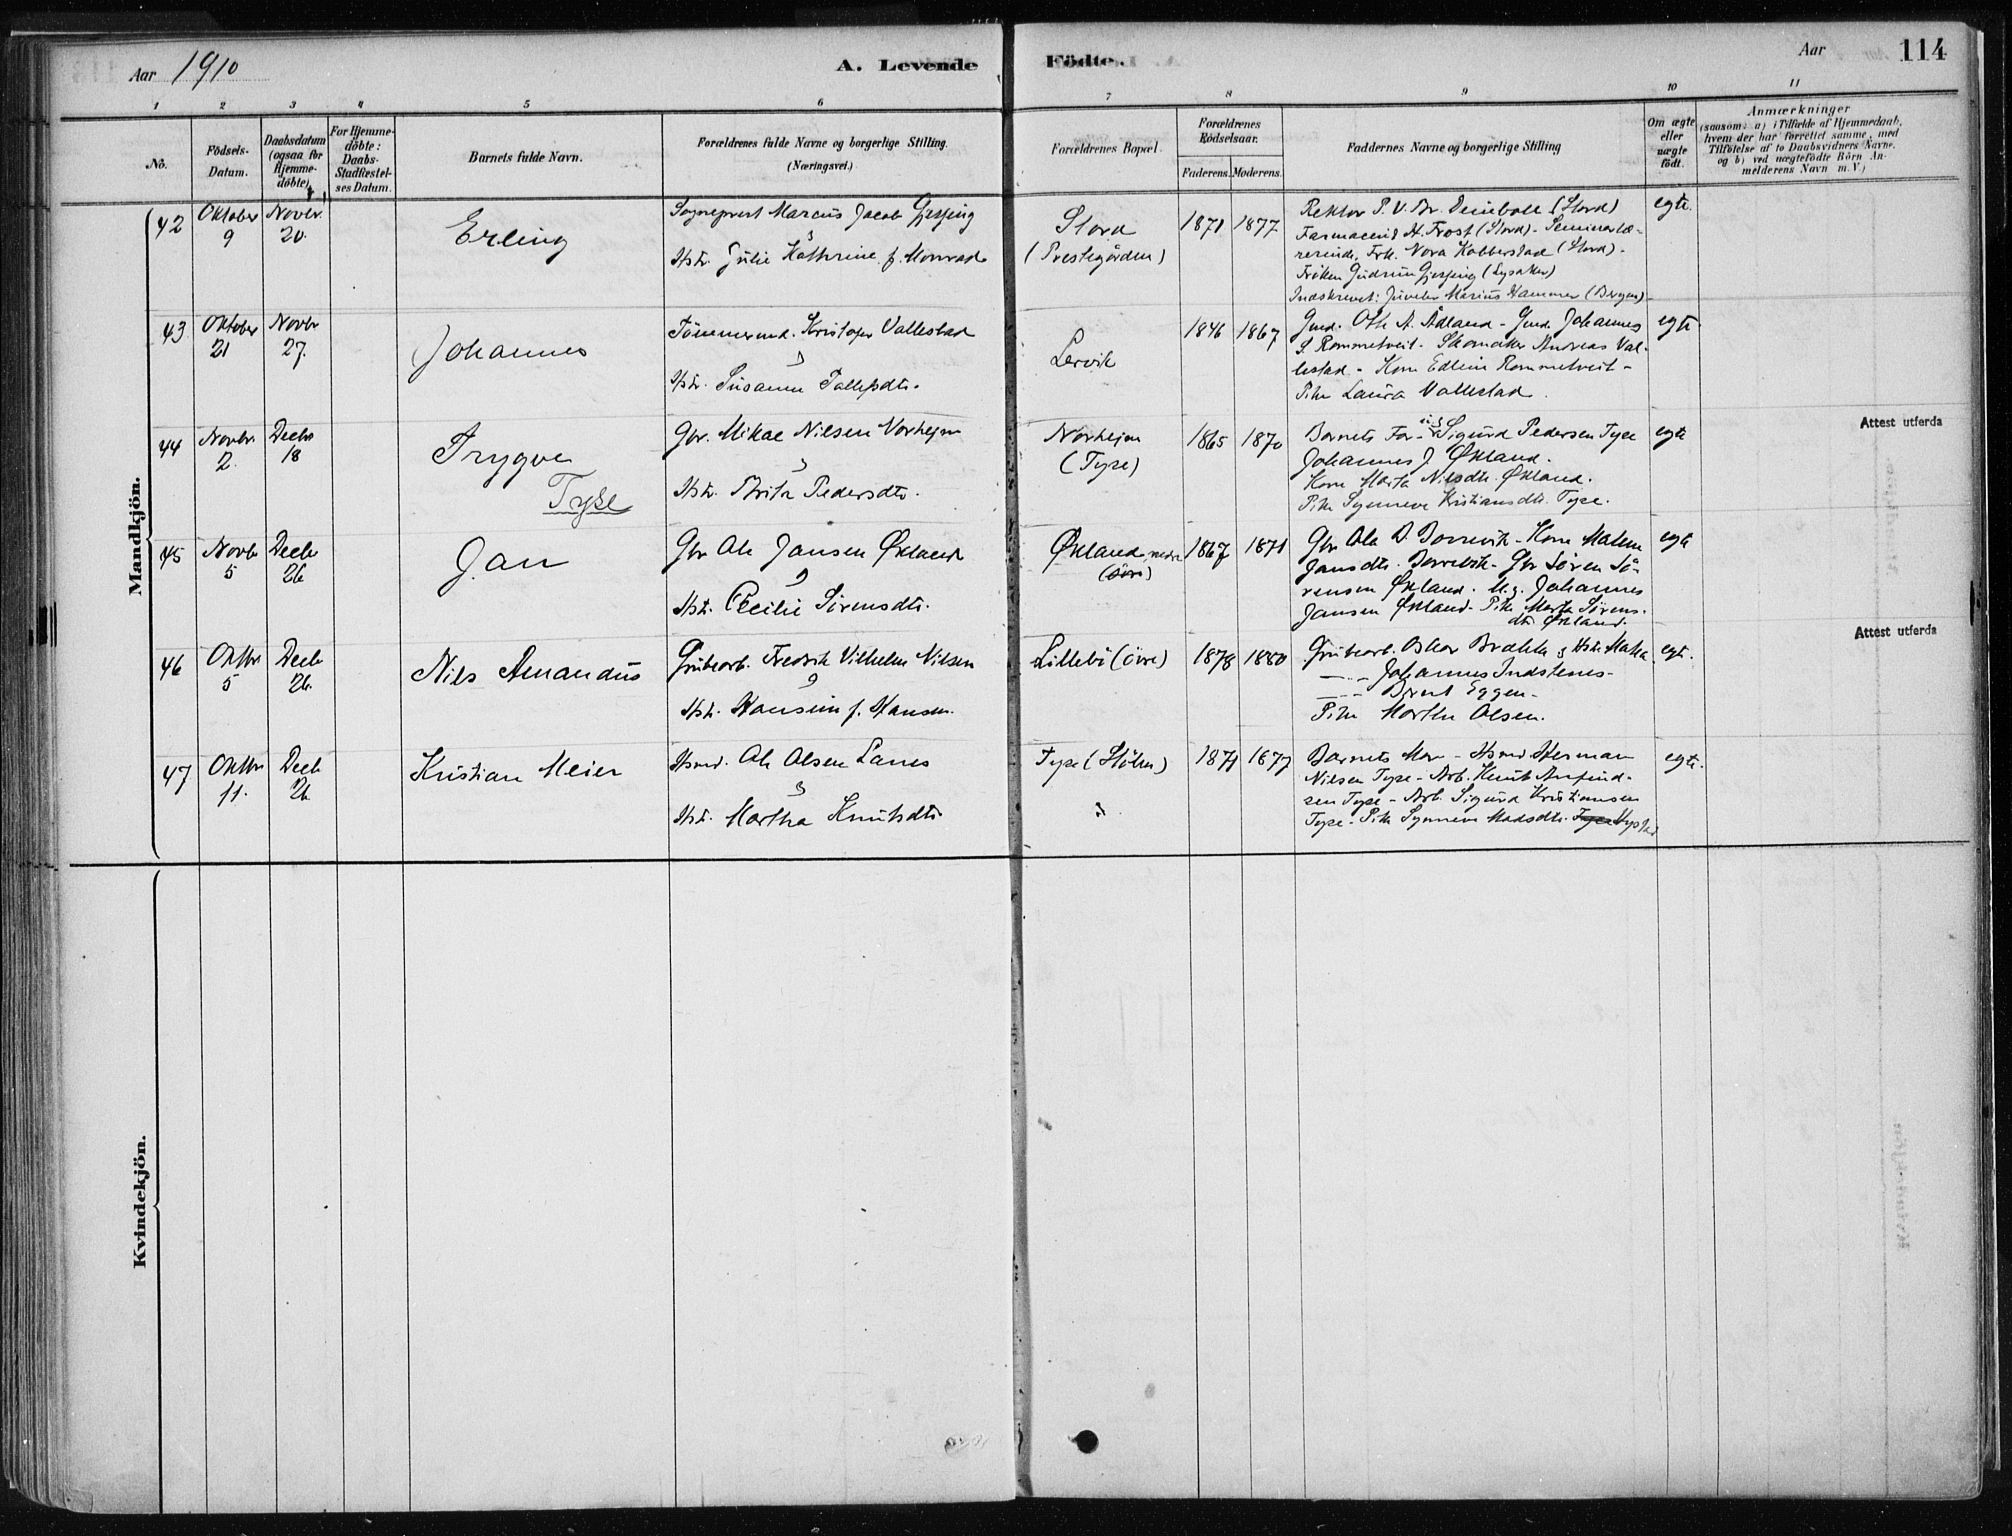 Aar 1910
A. Levende
Födte.
Aar
114
1 2 3 4 5 6 7 8 9 10 11
Nô.
Födsels-
Datum.
Daabsdatum
(ogsaa for
Hjemme-
döbte)
For Hjemme-
döbte:
Daabs-
Stadfæstel-
ses Datum.
Barnets fulde Navn.
Forældrenes fulde Navne og borgerlige Stilling.
(Næringsvei.)
Forældrenes Bopæl.
Forældrenes
Födselsaar.
Faderens. Moderens.
Faddernes Navne og borgerlige Stilling
Om ægte
eller
uægte
födt.
Anmærkninger
(saasom: a) i Tilfælde af Hjemmedaab,
hvem der har forrettet samme, med
Tilföielse af to Daabsvidners Navne.
og b) ved uægtefödte Börn An-
melderens Navn m.V.)
Mandkjön.
42
Oktober
9
Novbr.
20.
Erling
Sogneprest Marcus Jacob Gjessing
Hstr. Julie Kathrine f. Monrad
Stord
(Prestegården)
1871 1877
Rektor P. V. Br. Deinboll (Stord)
Farmaceut N. Frost (Stord) - Seminarlæ-
rerinde, Frk. Nora Kobberstad (Stord) -
Frøken Gudrun Gjessing (Lysaker)
Indskrevet: Juveler Marius Hammer (Bergen) -
egte.
43
Oktober
21
Novbr
27.
Johannes
Tömmermd. Kristofer Vallestad
Hstr. Susanna Tollefsdtr.
Lervik
1846 1867
Gmd. Oth. A. Ådland - Gmd. Johannes
S. Rommetveit - Skomaker Andreas Val-
lestad - Kone Edlein Rommetveit -
Pike Laura Vallestad.
egte
44
Novbr.
2.
Decbr
18
Trygve
Tyse
Gbr. Mikal Nilsen Norhejm
Hstr. Brita Pedersdtr.
Norhejm
(Tyse)
1865 1870
Barnets Far - Sigurd Pedersen Tyse
Johannes J. Økland.
Kone Marta Nilsdtr. Økland.
Pike Synneve Kristiansdtr. Tyse.
egte
Attest utferda
45
Novbr
5
Decbr
26
Jan
Gbr Ole Jansen Økland
Hstr. Cecilie Sörensdtr.
Økland nedre
1867 1871
Gbr Ole D. Dorrevik - Kone Malene
Jansdtr. Dorrevik - Gbr Sören Sö-
rensen Økland. U.g. Johannes
Jansen Økland - Pike Marta Sörens-
dtr Økland.
egte
46
Oktbr.
5
Decbr
26.
Nils Amandus
Grubearb. Fredrik Vilhelm Nilsen
Hstr. Hansine f. Hansen.
Lillebö (övre)
1878 1880
Grubearb. Oskar
Johannes Indstenes -
Eggen -
Pike Marthe Olsen.
egte.
Attest utferda
47
Oktbr.
11.
Decbr
26
Kristian Meier
Hsmd. Ole Olsen Lanes
Hstr. Martha Knutsdtr
Tyse (Stölen)
1871 1877
Barnets Mor - Hsmd Herman
Nilsen Tyse - Arb. Knut Arnfind-
sen Tyse - Arb. Sigurd Kristiansen
Tyse - Pike Synneve Madsdtr. Tyse Hystad
egte.
Kvindekjön.